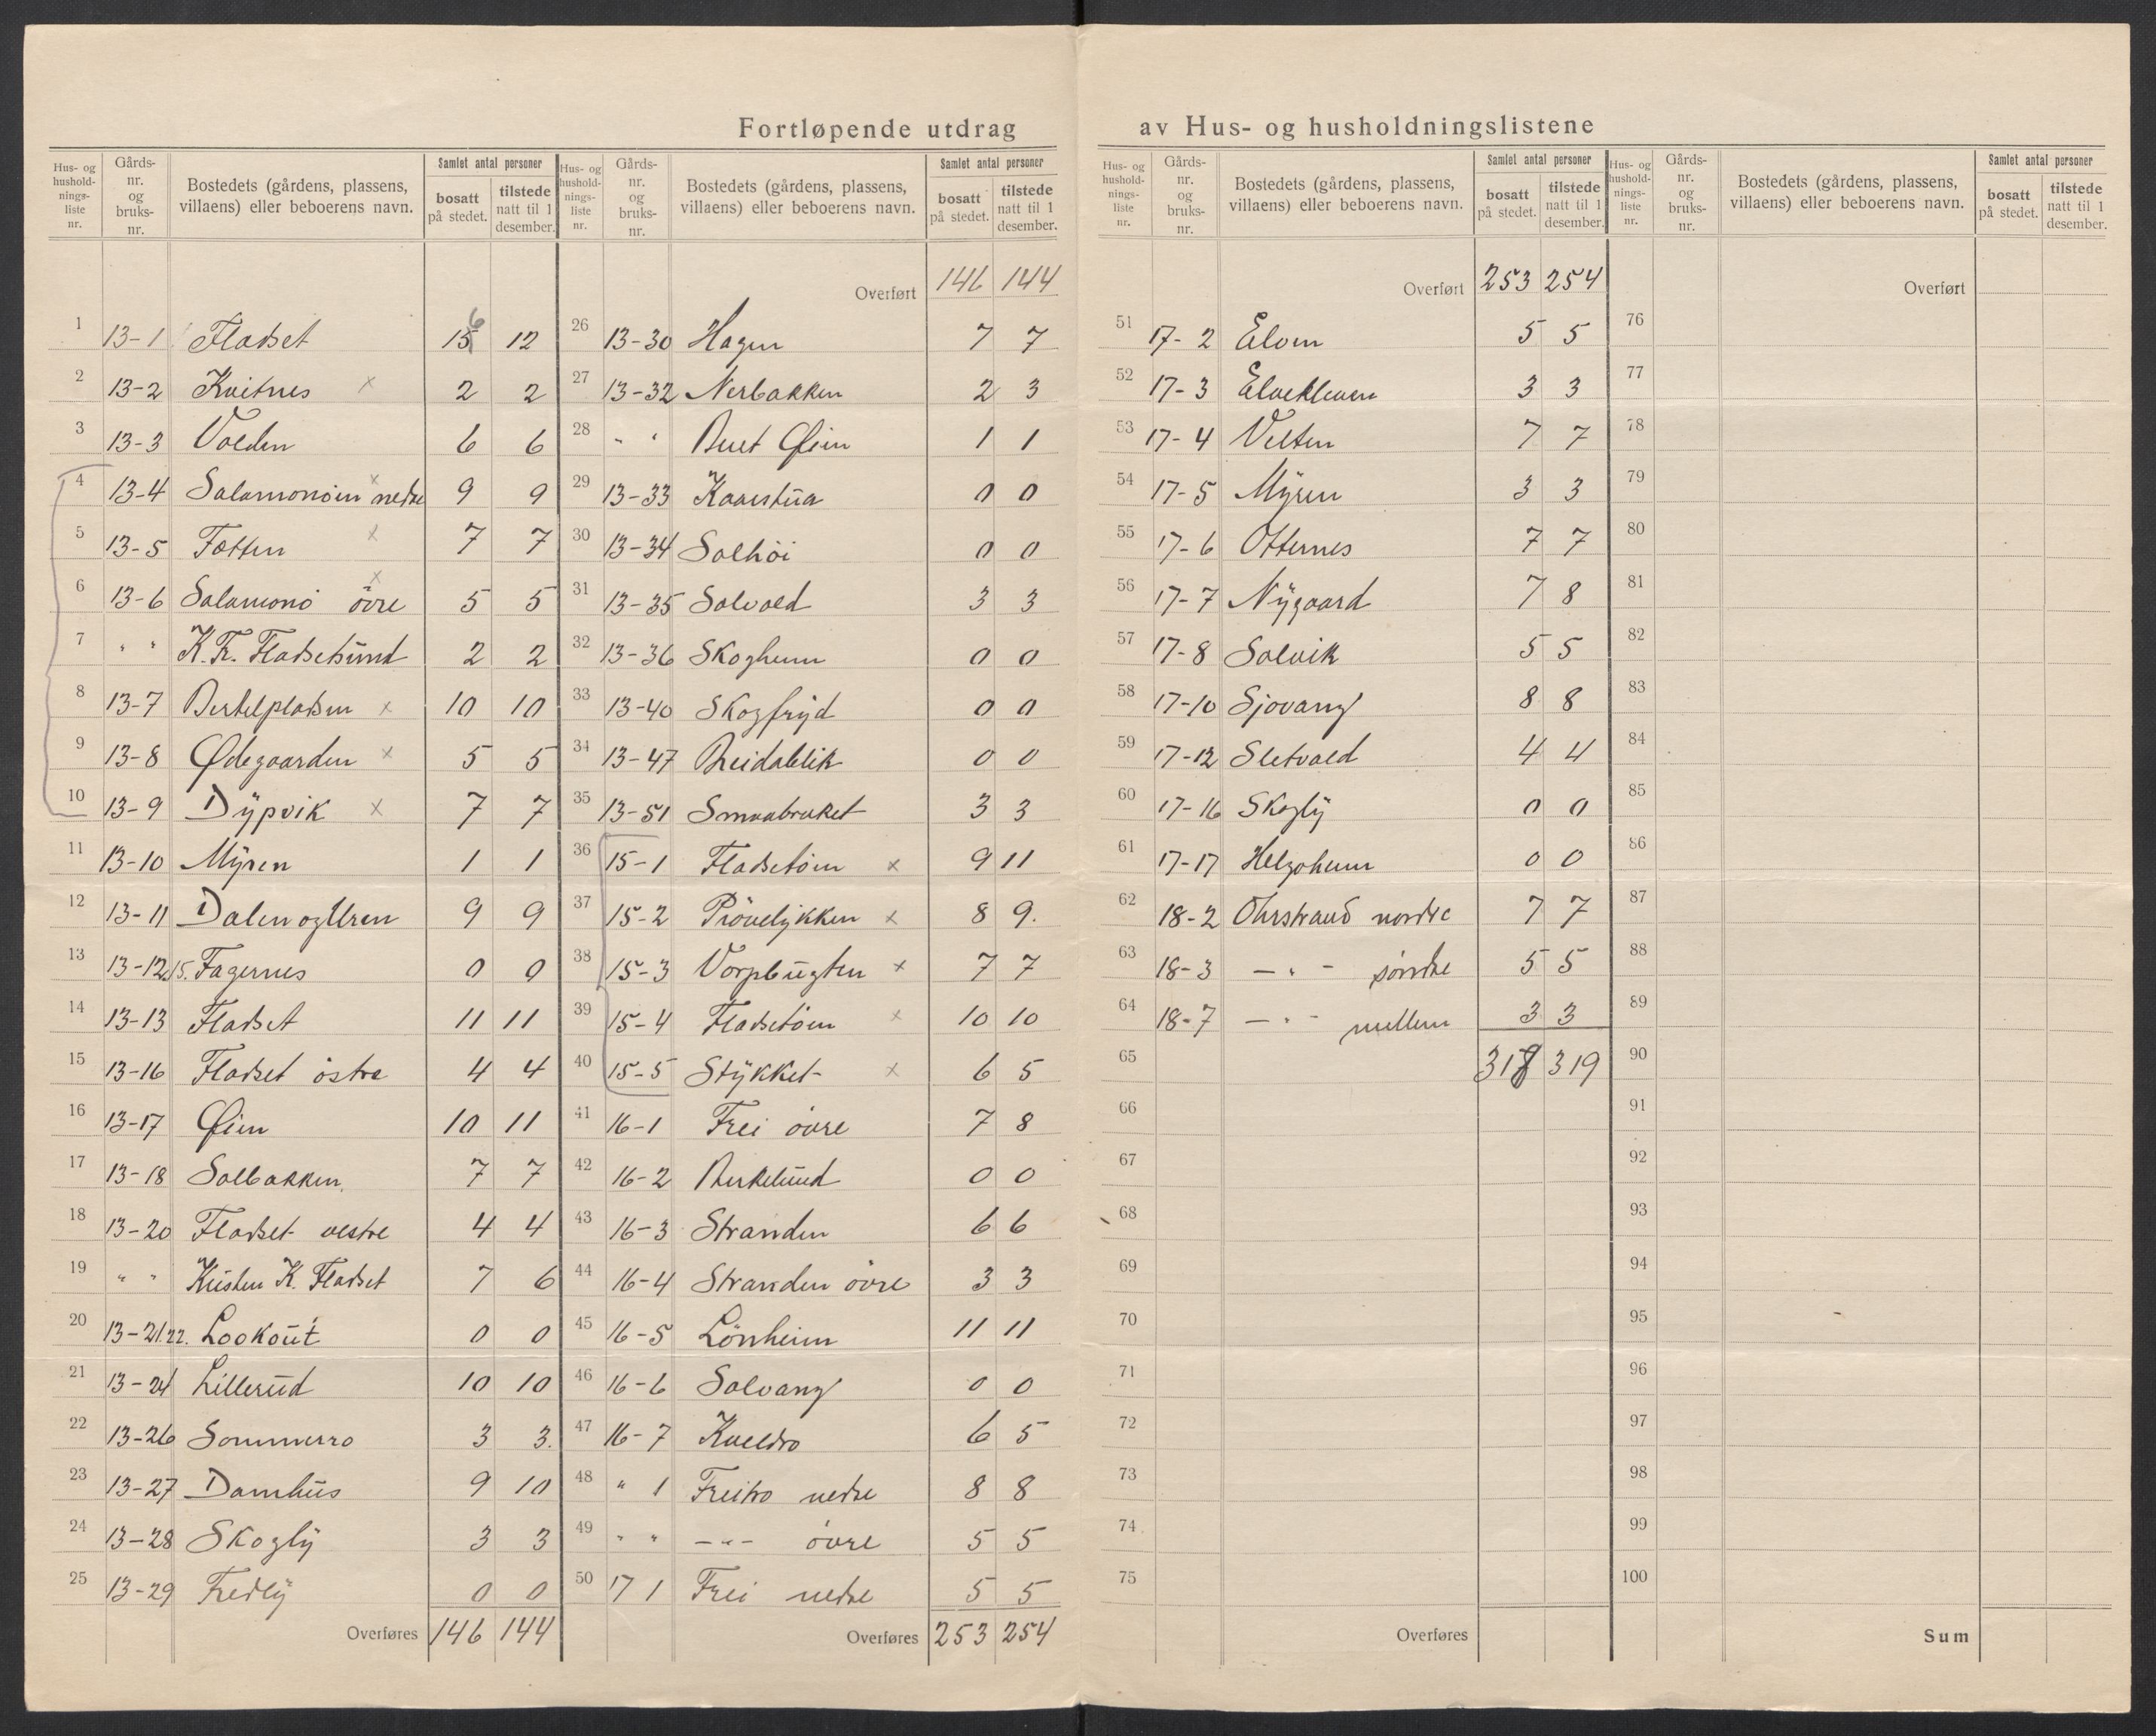 Fortløpende utdrag av Hus- og husholdningslistene
Hus- og husholdnings-liste nr. | Gårds-nr. og bruks-nr. | Bostedets (gårdens, plassens, villaens) eller beboerens navn. | Samlet antal personer | bosatt på stedet. | tilstede natt til 1 desember.
1 13-1 Fladset 15 6 12
2 13-2 Kvitnes x 2 2
3 13-3 Volden 6 6
4 13-4 Salamonøien nedre x 9 9
5 13-5 Fætten x 7 7
6 13-6 Salamonö övre x 5 5
7 " " K. Fr. Fladsetsund 2 2
8 13-7 Bertelpladsen x 10 10
9 13-8 Ødegaarden x 5 5
10 13-9 Dypvik x 7 7
11 13-10 Myren 1 1
12 13-11 Dalen og Uren 9 9
13 13-12,15. Fagernes 0 0
14 13-13 Fladset 11 11
15 13-16 Fladset östre 4 4
16 13-17 Øien 10 11
17 13-18 Solbakken 7 7
18 13-20 Fladset vestre 4 4
19 " " Kristen K. Fladset 7 6
20 13-21.22. Lookout 0 0
21 13-24 Lillerud 10 10
22 13-26 Sommerro 3 3.
23 13-27 Damhus 9 10
24 13-28 Skogly 3 3
25 13-29 Fredly 0 0
Overføres 146 144
Hus- og husholdnings-liste nr. | Gårds-nr. og bruks-nr. | Bostedets (gårdens, plassens, villaens) eller beboerens navn. | Samlet antal personer | bosatt på stedet. | tilstede natt til 1 desember.
Overført 146 144
26 13-30 Hagen 7 7
27 13-32 Nerbakken 2 3
28 " " Beret Øien 1 1
29 13-33 Kaarstua 0 0
30 13-34 Solhöi 0 0
31 13-35 Solvold 3 3
32 13-36 Skogheim 0 0
33 13-40 Skogfryd 0 0
34 13-47 Breidablik 0 0
35 13-51 Smaabruket 3 3
36 15-1 Fladsetöien x 9 11
37 15-2 Prövelykken x 8 9.
38 15-3 Vorpbugten x 7 7
39 15-4 Fladsetöien x 10 10
40 15-5 Stykket x 6 5
41 16-1 Frei övre 7 8
42 16-2 Birkelund 0 0
43 16-3 Stranden 6 6
44 16-4 Stranden övre 3 3
45 16-5 Lönheim 11 11
46 16-6 Solvang 0 0
47 16-7 Kveldro 6 5
48 " 1 Freitro nedre 8 8
49 " " -"- övre 5 5
50 17 1 Frei nedre 5 5
Overføres 253 254
Hus- og husholdnings-liste nr. | Gårds-nr. og bruks-nr. | Bostedets (gårdens, plassens, villaens) eller beboerens navn. | Samlet antal personer | bosatt på stedet. | tilstede natt til 1 desember.
Overført 253 254
51 17-2 Elven 5 5
52 17-3 Elvekleven 3 3
53 17-4 Velten 7 7
54 17-5 Myren 3 3
55 17-6 Otternes 7 7
56 17-7 Nygaard 7 8
57 17-8 Solvik 5 5
58 17-10 Sjovang 8 8
59 17-12 Sletvold 4 4
60 17-16 Skogly 0 0
61 17-17 Helgoheim 0 0
62 18-2 Ohrstrand nordre 7 7
63 18-3 -"- söndre 5 5
64 18-7 -"- mellem 3 3
65 318 319
66
67
68
69
70
71
72
73
74
75
Overføres
Hus- og husholdnings-liste nr. | Gårds-nr. og bruks-nr. | Bostedets (gårdens, plassens, villaens) eller beboerens navn. | Samlet antal personer | bosatt på stedet. | tilstede natt til 1 desember.
Overført
76
77
78
79
80
81
82
83
84
85
86
87
88
89
90
91
92
93
94
95
96
97
98
99
100
Sum